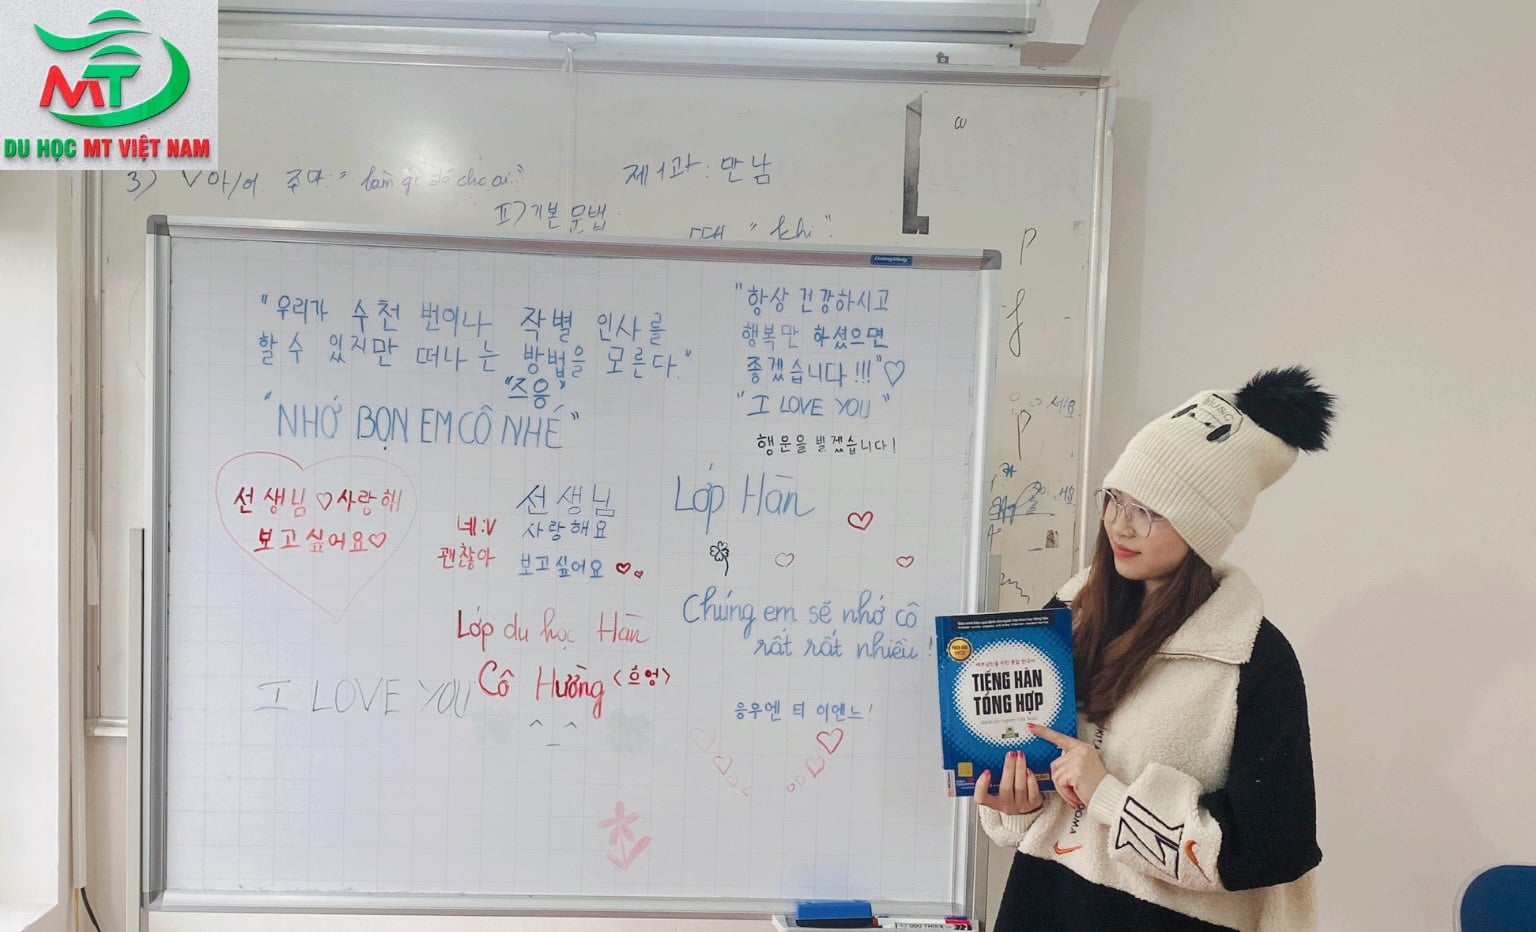 MT
DU HỌC MT VIỆT NAM
3) V 아/어 주다 : làm gì đó cho ai
제1과 : 만남
II) 기본 문법
때 " khi "
"우리가 수천 번이나 작별 인사를
할 수 있지만 떠나는 방법을 모른다."
"즈응"
"NHỚ BỌN EM CÔ NHÉ"
"항상 건강하시고
행복만 하셨으면
좋겠습니다!!!"♡
"I LOVE YOU"
행운을 빌겠습니다!
선생님♡사랑해
보고싶어요♡
네:V
괜찮아
선생님
사랑해요
보고싶어요
Lớp Hàn
Lớp du học Hàn
Cô Hường <흐엉>
^_^
I LOVE YOU
Chúng em sẽ nhớ cô
rất rất nhiều!
응우엔 티 이엔느!
TIẾNG HÀN
TỔNG HỢP
dành cho người Việt Nam